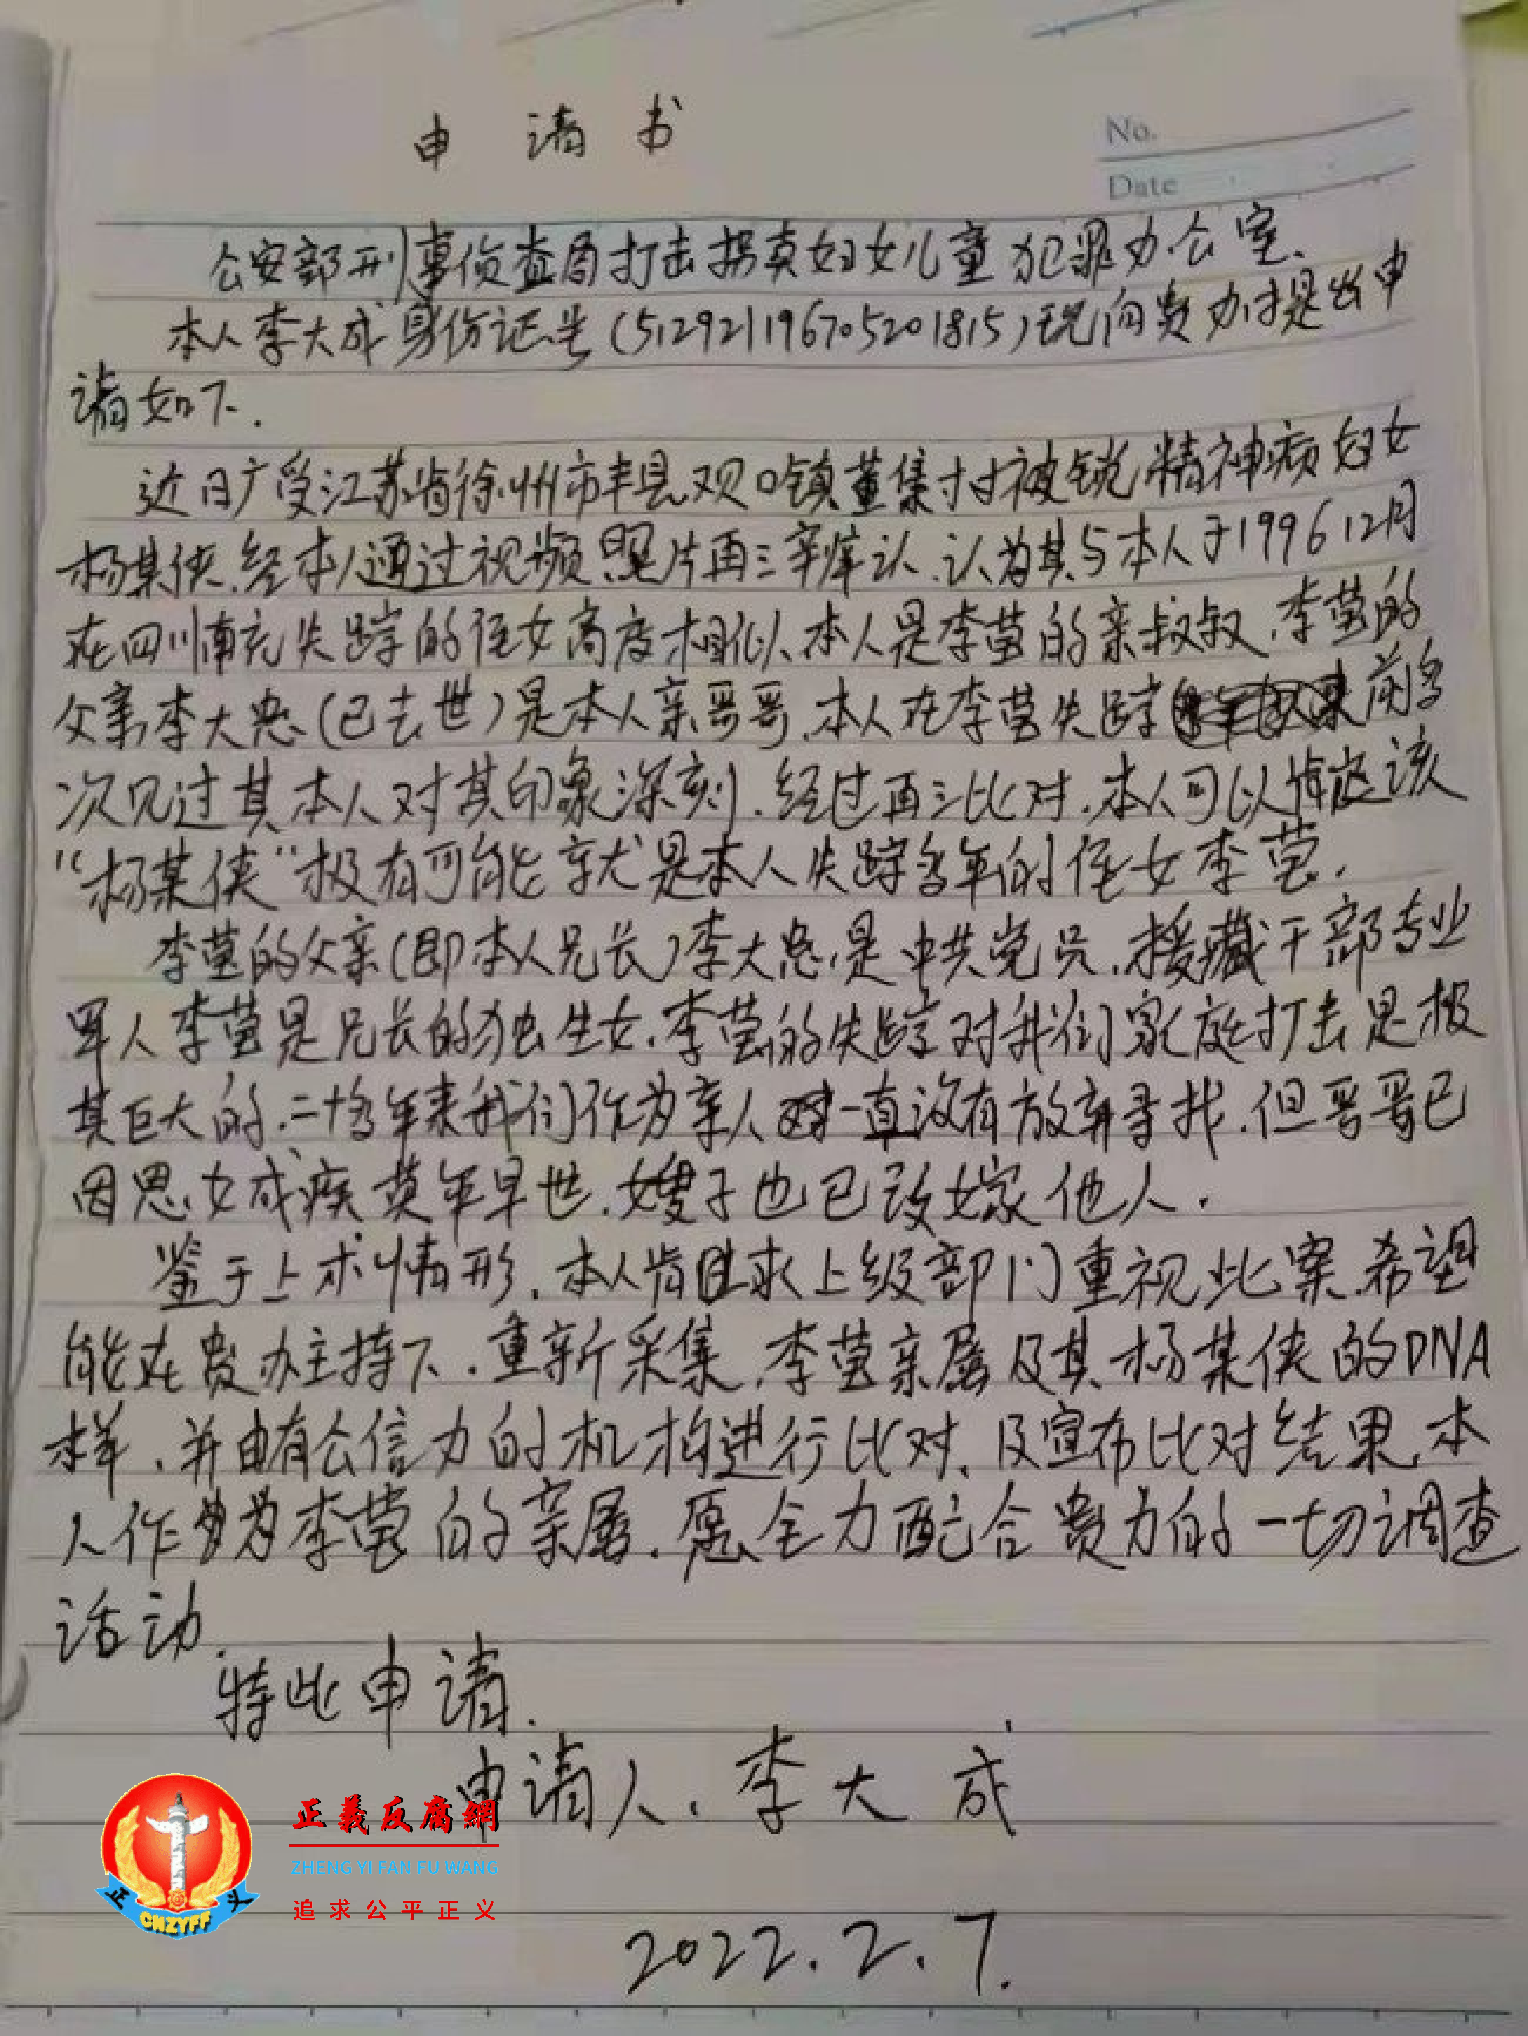 申 请 书
No.
Date
公安部刑事侦查局打击拐卖妇女儿童犯罪办公室.
本人李大成身份证号(512921196705201815)现向贵办提出申
请如下.
近日广受江苏省徐州市丰县欢口镇董集村被锁精神病妇女
杨某侠.经本人通过视频照片再三辨认.认为其与本人于1996 12月
在四川南充失踪的侄女高度相似.本人是李莹的亲叔叔.李莹的
父亲李大忠(已去世)是本人亲哥哥.本人在李莹失踪前多
次见过其本人对其印象深刻.经过再三比对.本人可以确定该
“杨某侠”极有可能就是本人失踪多年的侄女李莹.
李莹的父亲(即本人兄长)李大忠是中共党员.援藏干部专业
军人李莹是兄长的独生女.李莹的失踪对我们家庭打击是极
其巨大的.二十多年来我们作为亲人一直没有放弃寻找.但哥哥已
因思女成疾英年早世.嫂子也已改嫁他人.
鉴于上术情形.本人肯且求上级部门重视此案.希望
能在贵办主持下.重新采集.李莹亲属及其杨某侠的DNA
样.并由有公信力的机构进行比对.及宣布比对结果.本
人作为李莹的亲属.愿全力配合贵方的一切调查
活动.
特此申请.
申请人.李大成
2022.2.7.
正義反腐網
ZHENG YI FAN FU WANG
追求公平正义
正 义
CNZYFF